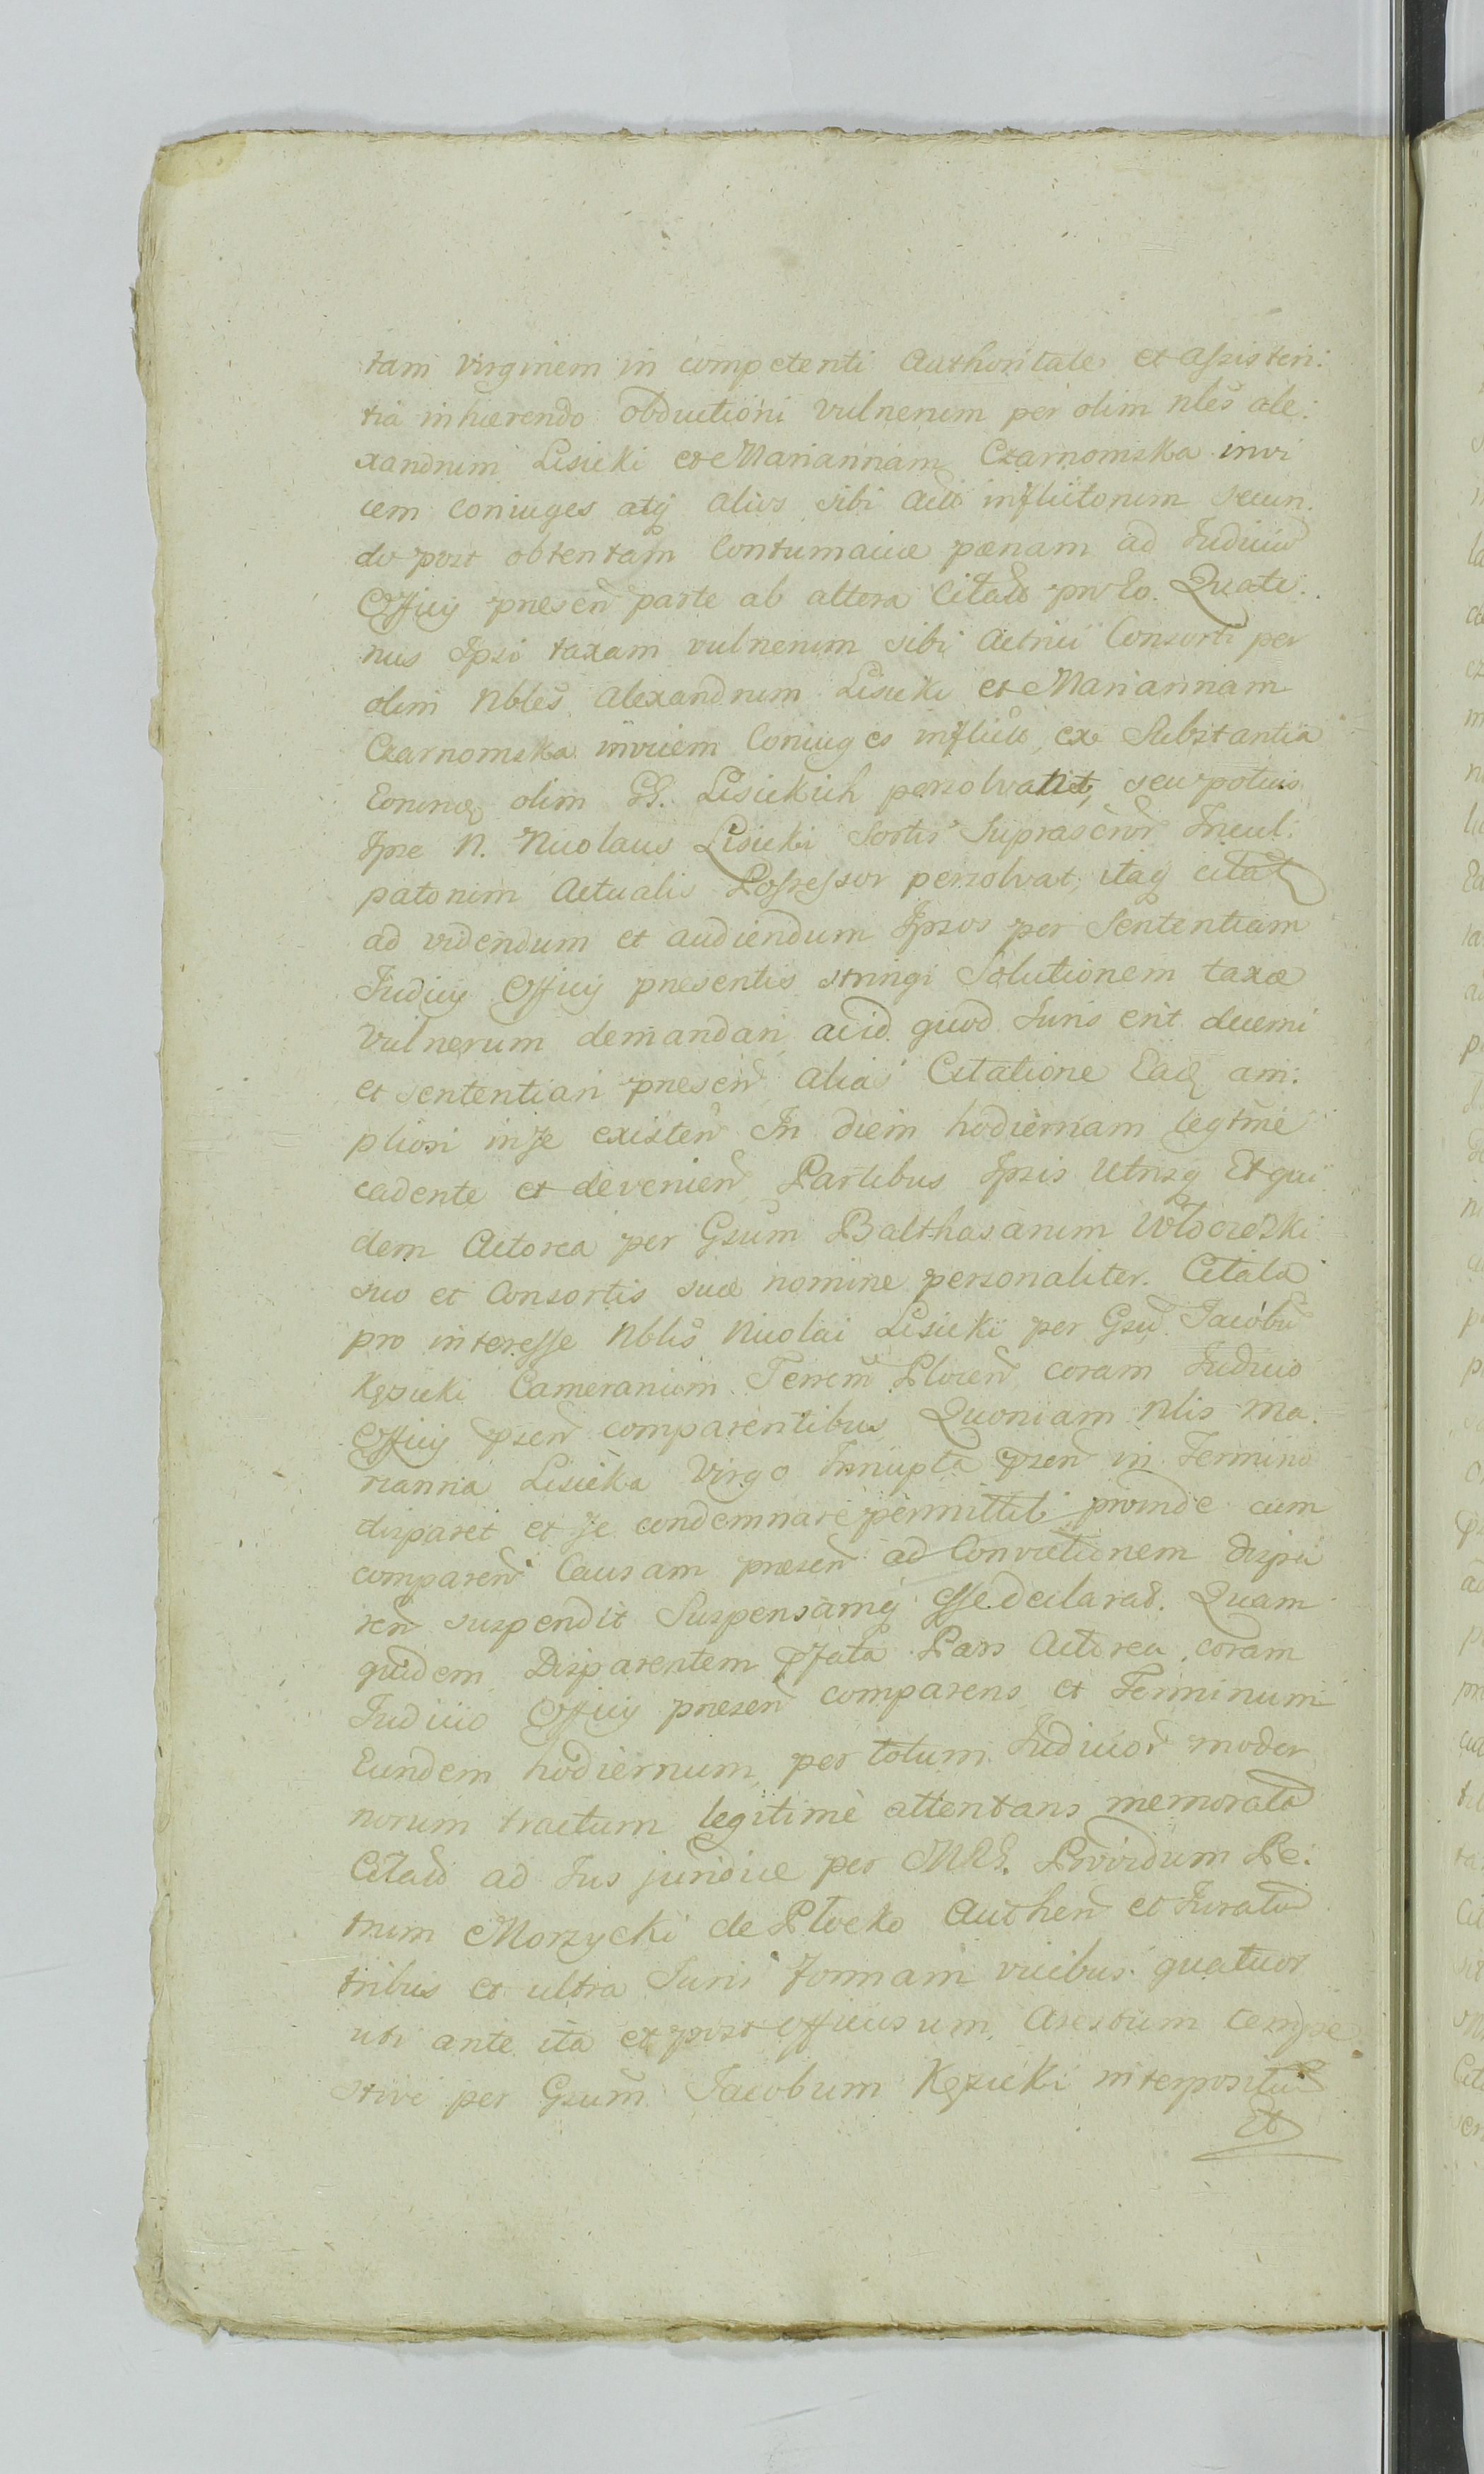 tam Virginem in competenti Authoritate et assisten:
tia inhærendo obductioni vulnerum per olim nles Ale:
xandrum Lisicki et Mariannam Czarnomska invi
cem Coniuges atq alios sibi actô inflictorum secun
do post obtentam Contumaciæ pœnam ad Judiciu
Officij præsen parte ab altera Citatô Quate:
nus Ipsi taxam vulnerum sibi Actrici Consorti per
olim Nbles Alexandrum Lisicki et Mariannam
Czarnomska invicem Coniuges inflictô ex Substantia
Eorundq olim GG. Lisickich persolvant, seu potius
Ipse N. Nicolaus Lisicki Sortis Suprascror Incul:
patorum Actualis Possessor persolvat, itaq citat
ad videndum et audiendum Ipsos per Sententiam
Judicij Officij præsentis stringi Solutionem taxæ
Vulnerum demandari acid quod Juris erit decerni
et sententiari præsen alias Citatione Eadq am:
pliori in se existen In diem hodiernam legtme
cadente et devenien Partibus Ipsis Utrisq Et qui
dem Actorea per Gsum Balthasarum Włoczeski
suo et Consortis suæ nomine personaliter. Citata
pro interesse Nblis Nicolai Lisicki per Gsu Jacobu
Kęsicki Camerarium Terrem Plocen coram Judicio
Officij psen comparentibus Quoniam Nlis Ma:
rianna Lisicka Virgo Innupta psen in Termino
disparet et se condemnare permittit proinde cum
comparen Causam præsen ad Convictionem dispa
ren suspendit Suspensamq esse declarat. Quam
quidem Disparentem pfata Pars Actorea coram
Judicio Officij præsen comparens et Terminum
Eundem hodiernum per totum Judicior moder
norum tractum legitimè attentans memorata
Citatô ad Jus juridice per Providum Pe:
trum Morzycki de Plocko Authen et Juratu
tribus et ultra Juris formam vicibus quatuor
uti ante ita et post officiosum Arestum tempe
stive per Gsum Jacobum Kęsicki interpositu
Et